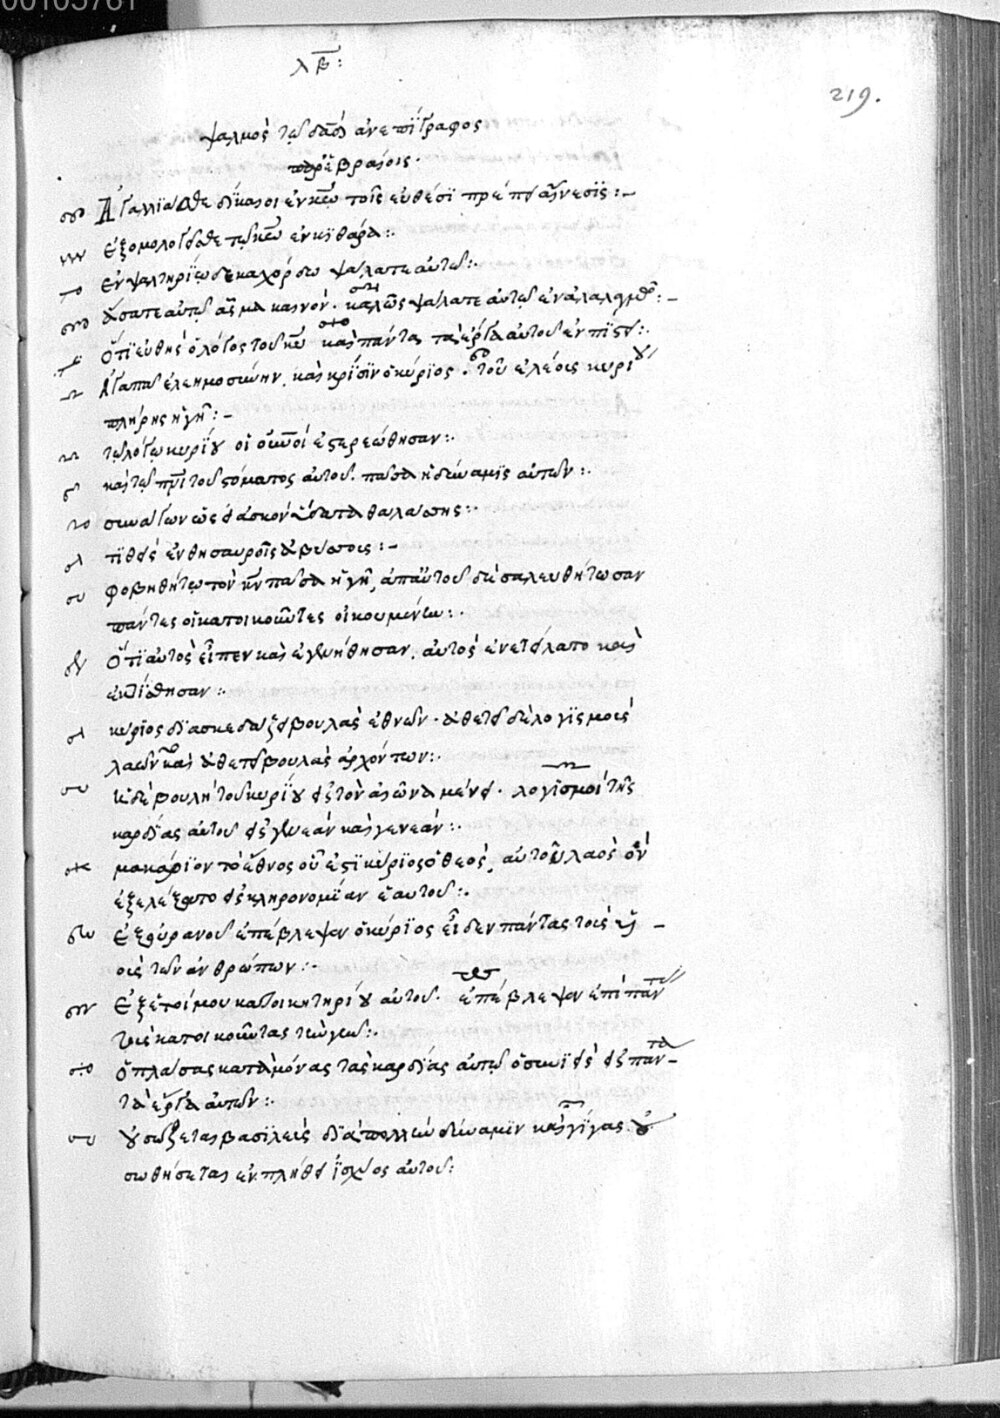 00105761
λβ:
219.
ψαλμὸς τῷ δαδ ἀνεπίγραφος
παρ' ἑβραίοις.
Ἀγαλλιᾶσθε δίκαιοι ἐν κω τοῖς εὐθέσι πρέπει αἴνεσις:
ἐξομολογεῖσθε τῷ κω ἐν κιθάρα:
ἐν ψαλτηρίω δεκαχόρδω ψάλατε αὐτῶ:
ᾄσατε αὐτῷ ἆσμα καινόν. καλῶς ψάλατε αὐτῷ ἐν ἀλαλαγμῷ:
ὅτι εὐθὴς ὁ λόγος τοῦ κυ καὶ πάντα τὰ ἔργα αὐτοῦ ἐν πίστει:
ἀγαπᾷ ἐλεημοσύνην, καὶ κρίσιν ὁ κύριος. τοῦ ἐλέους κυρίου
πλήρης ἡ γῆ:
τῷ λόγῳ κυρίου οἱ οὐνοὶ ἐστερεώθησαν:
καὶ τῷ πνι τοῦ στόματος αὐτοῦ. πᾶσα ἡ δύναμις αὐτῶν:
συνάγων ὡς εἰ ἀσκὸν ὕδατα θαλάσσης:
τιθεὶς ἐν θησαυροῖς ἀβύσσους:
φοβηθήτω τὸν κν πᾶσα ἡ γῆ, ἀπ' αὐτοῦ δὲ σαλευθήτωσαν
πάντες οἱ κατοικοῦντες οἰκουμένην:
ὅτι αὐτὸς εἶπεν καὶ ἐγενήθησαν, αὐτὸς ἐνετείλατο καὶ
ἐκτίσθησαν:
κύριος διασκεδάζει βουλὰς ἐθνῶν. ἀθετεῖ δὲ λογισμοὺς
λαῶν καὶ ἀθετεῖ βουλὰς ἀρχόντων:
ἡ δὲ βουλὴ τοῦ κυρίου εἰς τὸν αἰῶνα μένει. λογισμοὶ τῆς
καρδίας αὐτοῦ εἰς γενεὰν καὶ γενεάν:
μακάριον τὸ ἔθνος οὗ ἐστι κύριος ὁ θεὸς αὐτοῦ λαὸς ὃν
ἐξελέξατο εἰς κληρονομίαν ἑαυτοῦ:
ἐξ οὐρανοῦ ἐπέβλεψεν ὁ κύριος εἶδεν πάντας τοὺς υἱ
οὺς τῶν ἀνθρώπων:
ἐξ ἑτοίμου κατοικητηρίου αὐτοῦ. ἐπέβλεψεν ἐπὶ πάντας
τοὺς κατοικοῦντας τὴν γῆν:
ὁ πλάσας κατὰ μόνας τὰς καρδίας αὐτῶν ὁ συνιεὶς εἰς πάντα
τὰ ἔργα αὐτῶν:
οὐ σώζεται βασιλεὺς διὰ πολλὴν δύναμιν καὶ γίγας οὐ
σωθήσεται ἐν πλήθει ἰσχύος αὐτοῦ: